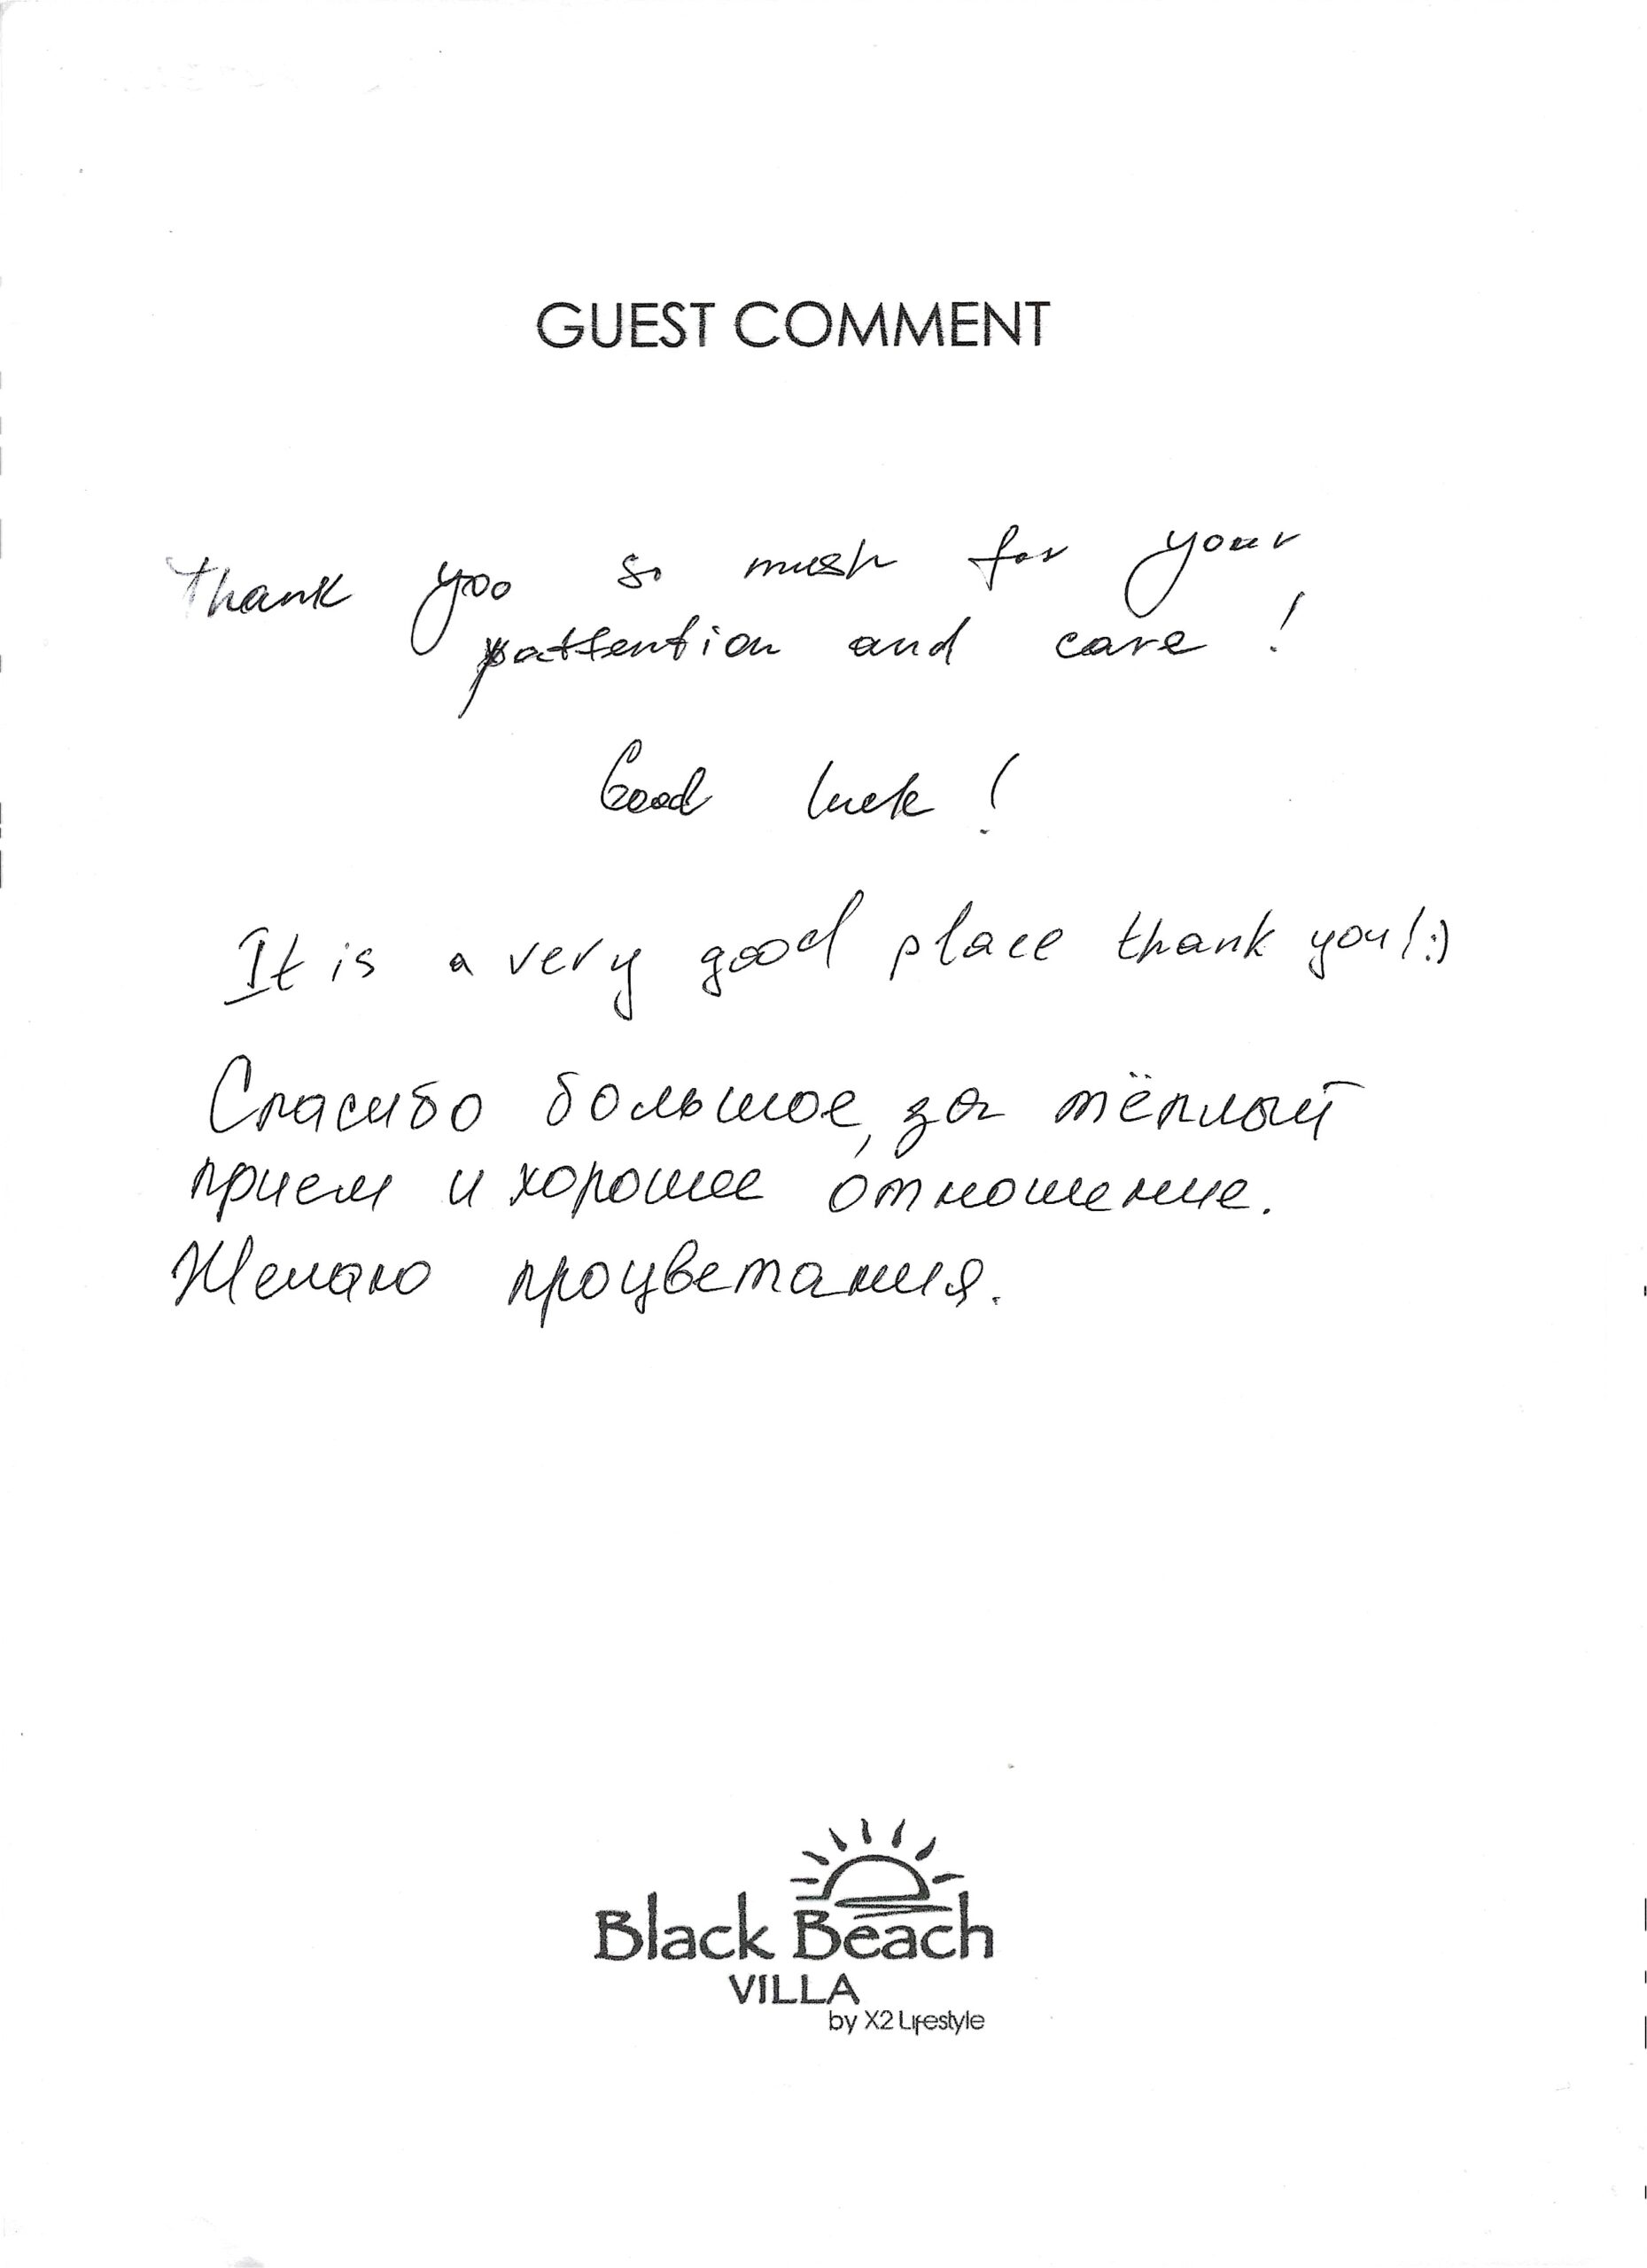 GUEST COMMENT
Thank yoo so mush for your
attention and care!
Good luck!
It is a very good place thank you!:)
Спасибо большое, за тёплый
прием и хорошее отношение.
Желаю процветания.
Black Beach
VILLA
by X2 Lifestyle